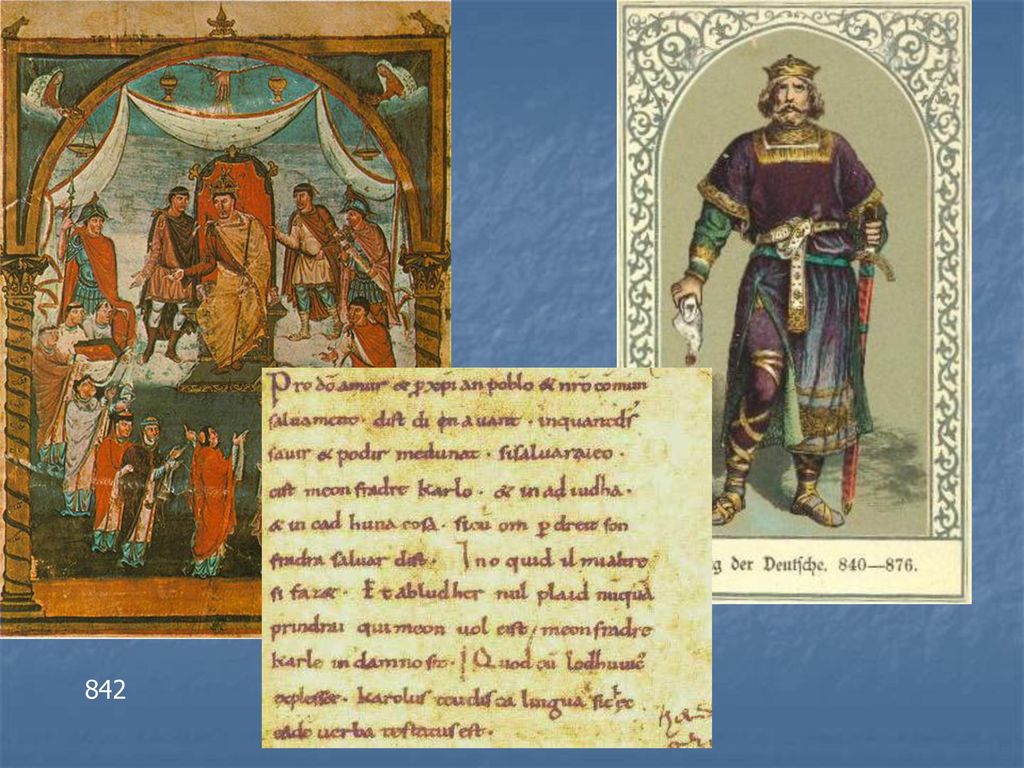 Pro dõ amur & p xpian poblo & nrõ comun
saluament. dist di en auant. inquantds
sauir & podir medunat. sisaluaraieo.
cist meon fradre karlo. & in ad iudha.
& in cad huna cosa. sicũ om p dreit son
fradra saluar dist. Ino quid il mialtre
si fazet. Et abludher nul plaid nũquã
prindrai qui meon uol cist meonfradre
karle in damno sit. Quod cũ lodhuuic
explesset. karolus teudisca lingua
eade uerba testatus est.
g der Deutsche. 840—876.
842